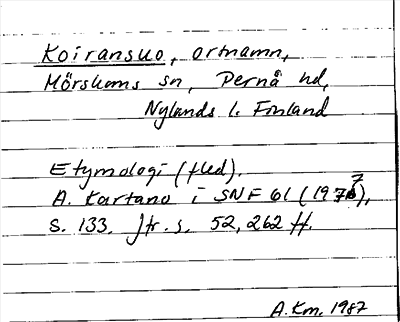 Koiransuo, ortnamn,
Mörskoms sn, Pernå hd,
Nylands l. Finland
Etymologi (fled).
A. Kartano i SNF 61 (1977),
s. 133. Jfr. s. 52, 262 ff.
A.Km. 1987